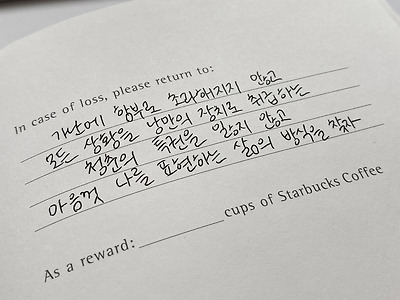 In case of loss, please return to:
가난에 함부로 초라해지지 않고
모든 상황을 낭만의 장치로 취급하는
청춘의 특권을 잃지 않고
마음껏 나를 표현하는 삶의 방식을 찾자
As a reward: cups of Starbucks Coffee